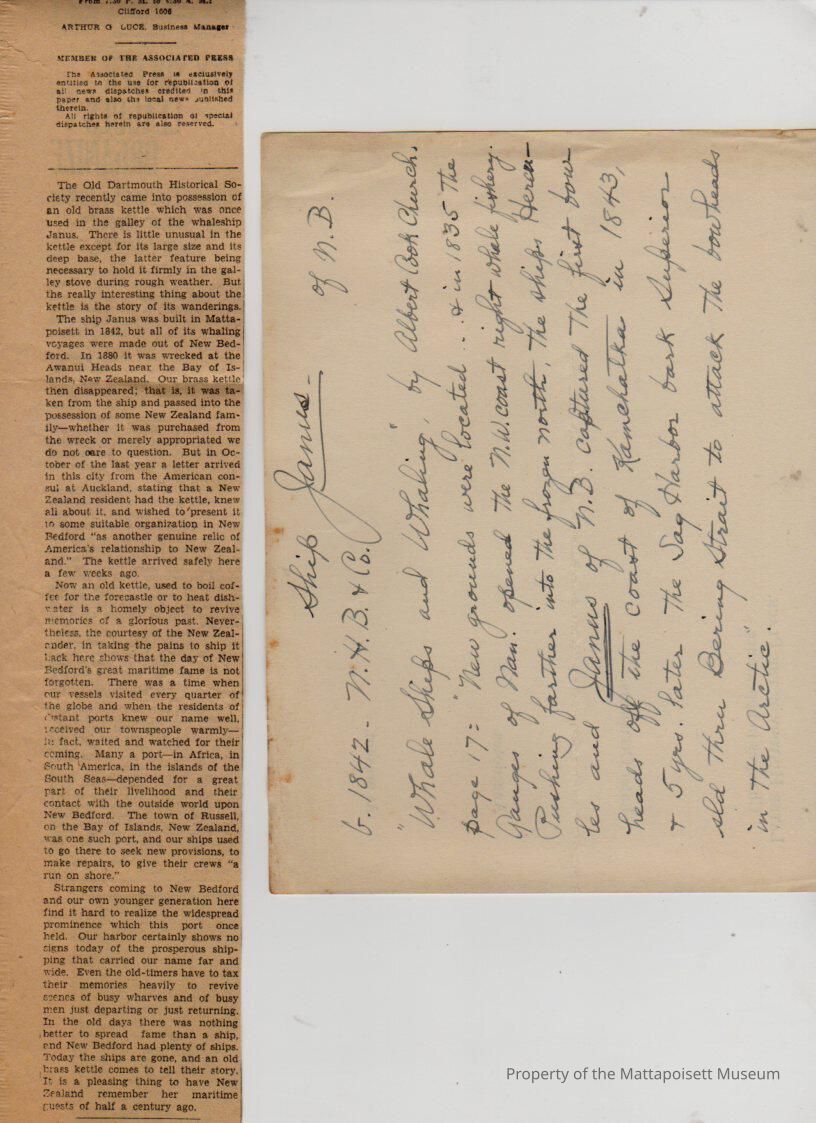 From 7:30 P. M. to 4:30 A. M.:
Clifford 1606
ARTHUR G LUCE, Business Manager
MEMBER OF THE ASSOCIATED PRESS
The Associated Press is exclusively
entitled to the use for republication of
all news dispatches credited in this
paper and also the local news published
therein.
All rights of republication of special
dispatches herein are also reserved.
The Old Dartmouth Historical So-
ciety recently came into possession of
an old brass kettle which was once
used in the galley of the whaleship
Janus. There is little unusual in the
kettle except for its large size and its
deep base, the latter feature being
necessary to hold it firmly in the gal-
ley stove during rough weather. But
the really interesting thing about the
kettle is the story of its wanderings.
The ship Janus was built in Matta-
poisett in 1842, but all of its whaling
voyages were made out of New Bed-
ford. In 1880 it was wrecked at the
Awanui Heads near the Bay of Is-
lands, New Zealand. Our brass kettle
then disappeared; that is, it was ta-
ken from the ship and passed into the
possession of some New Zealand fam-
ily—whether it was purchased from
the wreck or merely appropriated we
do not care to question. But in Oc-
tober of the last year a letter arrived
in this city from the American con-
sul at Auckland, stating that a New
Zealand resident had the kettle, knew
all about it, and wished to present it
to some suitable organization in New
Bedford "as another genuine relic of
America's relationship to New Zeal-
and." The kettle arrived safely here
a few weeks ago.
Now an old kettle, used to boil cof-
fee for the forecastle or to heat dish-
water is a homely object to revive
memories of a glorious past. Never-
theless, the courtesy of the New Zeal-
ander, in taking the pains to ship it
back here shows that the day of New
Bedford's great maritime fame is not
forgotten. There was a time when
our vessels visited every quarter of
the globe and when the residents of
distant ports knew our name well,
received our townspeople warmly—
in fact, waited and watched for their
coming. Many a port—in Africa, in
South America, in the islands of the
South Seas—depended for a great
part of their livelihood and their
contact with the outside world upon
New Bedford. The town of Russell,
on the Bay of Islands, New Zealand,
was one such port, and our ships used
to go there to seek new provisions, to
make repairs, to give their crews "a
run on shore."
Strangers coming to New Bedford
and our own younger generation here
find it hard to realize the widespread
prominence which this port once
held. Our harbor certainly shows no
signs today of the prosperous ship-
ping that carried our name far and
wide. Even the old-timers have to tax
their memories heavily to revive
scenes of busy wharves and of busy
men just departing or just returning.
In the old days there was nothing
better to spread fame than a ship,
and New Bedford had plenty of ships.
Today the ships are gone, and an old
brass kettle comes to tell their story.
It is a pleasing thing to have New
Zealand remember her maritime
guests of half a century ago.
Ship Janus of N.B.
b. 1842 - N.H.B. & Co.
"Whale Ships and Whaling", by Albert Cook Church.
page 17: "New grounds were located ... & in 1835 the
Ganges of Nan. opened the N.W. coast right whale fishery.
Pushing farther into the frozen north, the ships Hercu-
les and Janus of N.B. captured the first bow
heads off the coast of Kamchatka in 1843,
& 5 yrs. later the Sag Harbor bark Superior
sld thru Bering Strait to attack the bowheads
in the Arctic".
Property of the Mattapoisett Museum